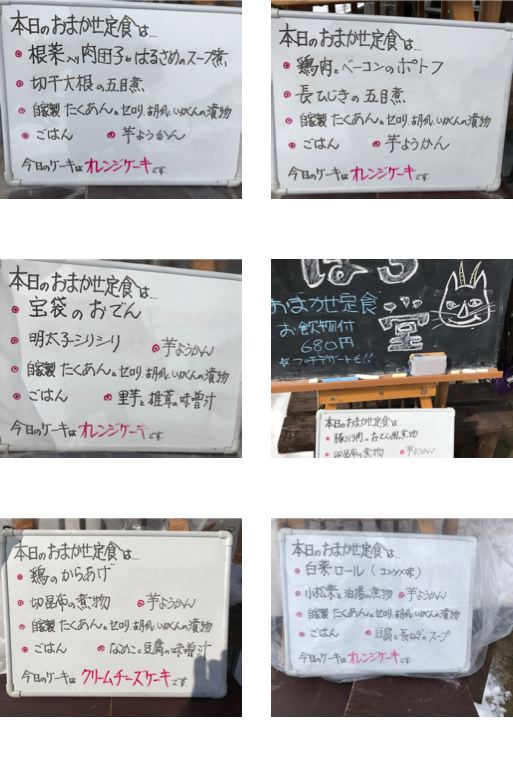 本日のおまかせ定食は…
根菜入り肉団子とはるさめのスープ煮
切干大根の五目煮
自家製 たくあんとセロリ、胡瓜、いかくんの漬物
ごはん 芋ようかん
今日のケーキは オレンジケーキです
本日のおまかせ定食は…
鶏肉とベーコンのポトフ
長ひじきの五目煮
自家製 たくあんとセロリ、胡瓜、いかくんの漬物
ごはん 芋ようかん
今日のケーキは オレンジケーキです
本日のおまかせ定食は…
宝袋のおでん
明太子シリシリ 芋ようかん
自家製 たくあんとセロリ、胡瓜、いかくんの漬物
ごはん 里芋と椎茸の味噌汁
今日のケーキは オレンジケーキです
おまかせ定食
お飲物付
680円
☆プチデザートも!!
堂
本日のおまかせ定食は…
豚バラ肉のおでん風煮物
切昆布の煮物 芋ようかん
本日のおまかせ定食は…
鶏のからあげ
切昆布の煮物 芋ようかん
自家製 たくあんとセロリ、胡瓜、いかくんの漬物
ごはん なめこと豆腐の味噌汁
今日のケーキは クリームチーズケーキです
本日のおまかせ定食は…
白菜ロール(コンソメ味)
小松菜と油揚の煮物 芋ようかん
自家製 たくあんとセロリ、胡瓜、いかくんの漬物
ごはん 豆腐と長ねぎのスープ
今日のケーキは オレンジケーキです